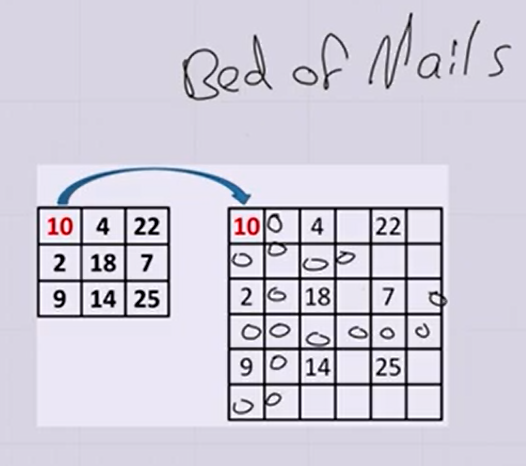 Bed of Nails
10 4 22
2 18 7
9 14 25
10 0 4 22
0 0 0 0
2 0 18 7 0
0 0 0 0 0 0
9 0 14 25
0 0